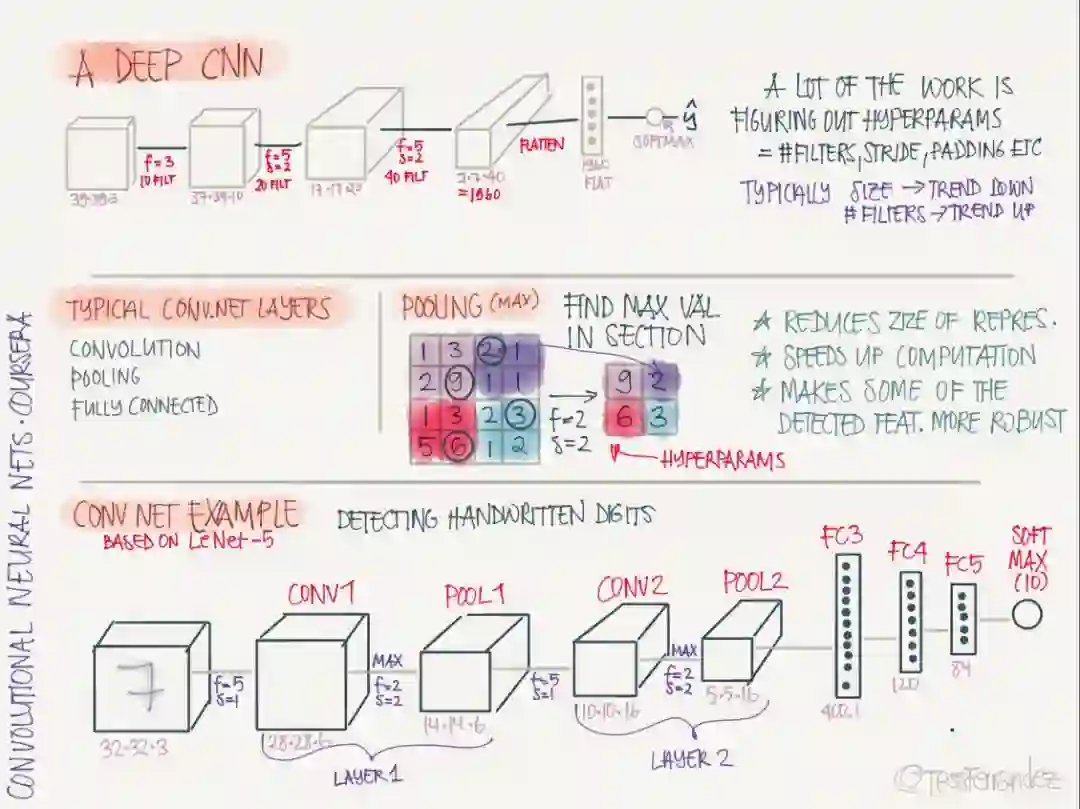 A DEEP CNN
39·39·3
f=3
10 FILT
37·37·10
f=5
S=2
20 FILT
17·17·20
f=5
S=2
40 FILT
7·7·40
=1960
FLATTEN
1960
FLAT
SOFTMAX
ŷ
A LOT OF THE WORK IS
FIGURING OUT HYPERPARAMS
= #FILTERS, STRIDE, PADDING ETC
TYPICALLY SIZE → TREND DOWN
# FILTERS → TREND UP
TYPICAL CONV.NET LAYERS
CONVOLUTION
POOLING
FULLY CONNECTED
POOLING (MAX)
1 3 2 1
2 9 1 1
1 3 2 3
5 6 1 2
f=2
S=2
9 2
6 3
HYPERPARAMS
FIND MAX VAL
IN SECTION
★ REDUCES ZIZE OF REPRES.
★ SPEEDS UP COMPUTATION
★ MAKES SOME OF THE
DETECTED FEAT. MORE ROBUST
CONV NET EXAMPLE
BASED ON LeNet-5
DETECTING HANDWRITTEN DIGITS
7
32·32·3
f=5
S=1
CONV1
28·28·6
MAX
f=2
S=2
POOL1
14·14·6
LAYER 1
f=5
S=1
CONV2
10·10·16
MAX
f=2
S=2
POOL2
5·5·16
LAYER 2
FC3
400.1
FC4
120
FC5
84
SOFT
MAX
(10)
CONVOLUTIONAL NEURAL NETS · COURSERA
@TessFerrandez